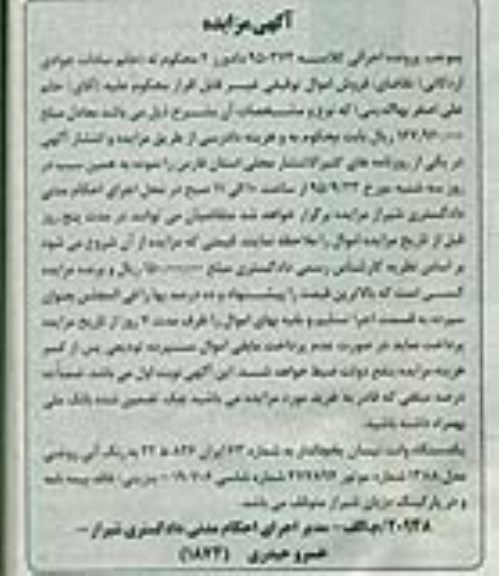 آگهی مزایده
بموجب پرونده اجرائی کلاسه ۹۵۰۳۷۳ دادورز ۲ محکوم له (خانم سادات جوادی
اردکانی) تقاضای فروش اموال توقیفی غیر قابل افراز محکوم علیه (آقای) خانم
علی اصغر که نوع و مشخصات آن بشرح ذیل می باشد معادل مبلغ
ریال بابت محکوم به و هزینه دادرسی از طریق مزایده و انتشار آگهی
در یکی از روزنامه های کثیرالانتشار محلی استان فارس را نموده به همین سبب در
روز سه شنبه مورخ ۹۵/۹/۲۳ از ساعت ۱۰ الی ۱۱ صبح در محل اجرای احکام مدنی
دادگستری شیراز مزایده برگزار خواهد شد متقاضیان می توانند در مدت پنج روز
قبل از تاریخ مزایده اموال را ملاحظه نمایند قیمتی که مزایده از آن شروع می شود
بر اساس نظریه کارشناس رسمی دادگستری مبلغ ریال و برنده مزایده
کسی است که بالاترین قیمت را پیشنهاد و ده درصد بها را فی المجلس بعنوان
سپرده به قسمت اجرا تسلیم و بقیه بهای اموال را ظرف مدت روز از تاریخ مزایده
پرداخت نماید در صورت عدم پرداخت مابقی اموال سپرده تودیعی پس از کسر
هزینه مزایده بنفع دولت ضبط خواهد شد. این آگهی نوبت اول می باشد ضمنا ده
درصد مبلغی که قادر به خرید مورد مزایده می باشید چک تضمین شده بانک ملی
بهمراه داشته باشید.
یکدستگاه وانت نیسان یخچالدار به شماره ۶۳ ایران ۸۲۶ ط ۲۲ به رنگ آبی روغنی
مدل ۱۳۸۸ شماره موتور شماره شاسی بنزینی، فاقد بیمه نامه
و در پارکینگ شیراز متوقف می باشد.
۲۰۹۳۸/م‌الف - مدیر اجرای احکام مدنی دادگستری شیراز -
خسرو حیدری (۱۸۷۳)